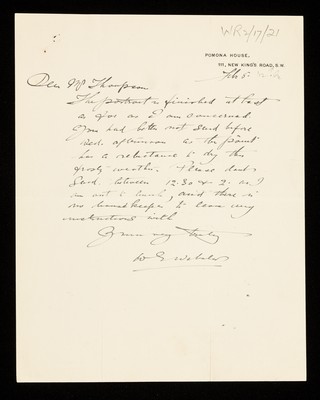 WR2/17/21
POMONA HOUSE,
111, NEW KING'S ROAD, S.W.
Feb 5
Dear Mr Thompson
The portrait is finished at last
as far as I am concerned
You had better not send before
afternoon as the paint
has a reluctance to dry this
frosty weather. Please don't
send between 12.30 & 2. as I
am out to lunch, and there is
no housekeeper to leave any
instructions with
Yours very truly
W G Webster